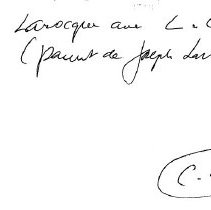 Larocque ave L.
(parent de Joseph Lar
C.